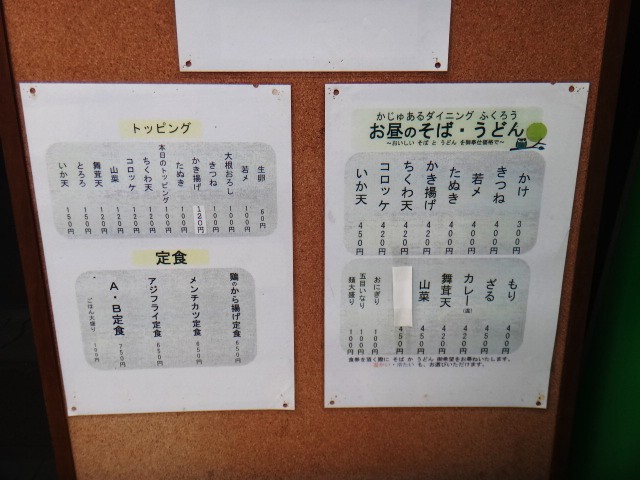 トッピング
生卵 60円
若メ 100円
大根おろし 100円
きつね 100円
かき揚げ 120円
たぬき 100円
本日のトッピング 100円
ちくわ天 120円
コロッケ 120円
山菜 150円
舞茸天 150円
とろろ 150円
いか天 150円
定食
鶏のから揚げ定食 650円
メンチカツ定食 650円
アジフライ定食 650円
A・B定食 750円
ごはん大盛り
かじゅあるダイニング ふくろう
お昼のそば・うどん
～おいしい そば と うどん を御奉仕価格で～
かけ 300円
きつね 400円
若メ 400円
たぬき 400円
かき揚げ 420円
ちくわ天 420円
コロッケ 420円
いか天 450円
もり 400円
ざる
カレー(温) 420円
舞茸天
山菜
450円
おにぎり 100円
五目いなり 100円
麺大盛り 100円
食券を買く際に そば か うどん 御希望をお尋ねいたします。
温かい・冷たい も、お選びいただけます。